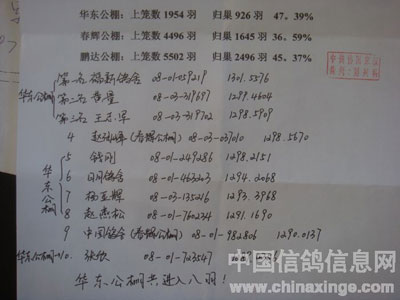 华东公棚：上笼数 1954 羽 归巢 926 羽 47。39%
春辉公棚：上笼数 4496 羽 归巢 1645 羽 36。59%
鹏达公棚：上笼数 5502 羽 归巢 2496 羽 45。37%
华东公棚
第一名 杨新鸽舍 08-01-059219 1301.5576
第二名 08-03-319697 1299.4604
第三名 08-03-319702 1298.5909
4 (春辉公棚) 08-03-037010 1298.5670
华东公棚
5 钱刚 08-01-249286 1298.2151
6 日月鸽舍 08-01-463203 1294.2068
7 杨亚辉 08-03-135216 1293.3968
8 赵燕松 08-01-760234 1291.1690
9 中国鸽舍 (春辉公棚) 08-01-982806 1290.0137
华东公棚 10. 张欣 08-01-723547
华东公棚共进入八羽！
中国信鸽信息网
www.chinaxinge.com